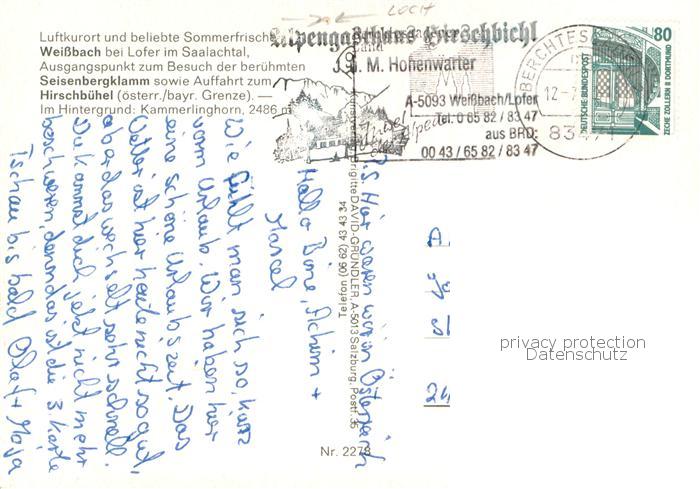 LOCH
Luftkurort und beliebte Sommerfrische
Weißbach bei Lofer im Saalachtal,
Ausgangspunkt zum Besuch der berühmten
Seisenbergklamm sowie Auffahrt zum
Hirschbühel (österr./bayr. Grenze). —
Im Hintergrund: Kammerlinghorn, 2486 m
Alpengasthaus Hirschbichl
J. u. M. Hohenwarter
A-5093 Weißbach/Lofer
Tel. 0 65 82 / 83 47
aus BRD:
00 43 / 65 82 / 83 47
BERCHTES
12-7
83471
80
DEUTSCHE BUNDESPOST
ZECHE ZOLLERN II DORTMUND
Hallo Bine, Achim +
Marcel
Wie fühlt man sich so, kurz
vorm Urlaub. Wir haben hier
eine schöne Urlaubszeit. Das
Wetter ist hier heute nicht so gut,
aber das wechselt sehr schnell.
Du kannst dich jetzt nicht mehr
beschweren, denn das ist die 3. Karte
Tschau bis bald Olaf + Maja
P.S. Hier waren wir in Österreich
Brigitte DAVID-GRÜNDLER, A-5013 Salzburg, Postf. 35
Telefon (06 62) 43 43 34
Nr. 2278
privacy protection
Datenschutz